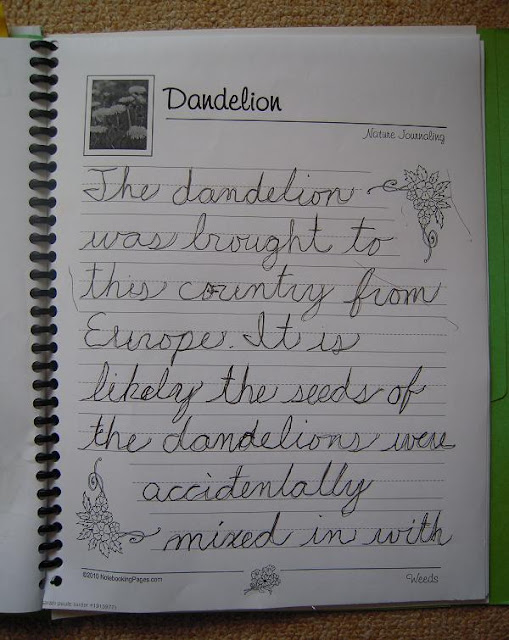 Dandelion
Nature Journaling
The dandelion
was brought to
this country from
Europe. It is
likely the seeds of
the dandelions were
accidentally
mixed in with
©2010 NotebookingPages.com
Weeds